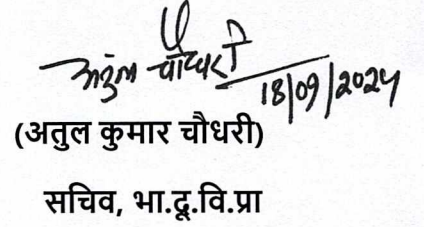 अतुल चौधरी
18/09/2024
(अतुल कुमार चौधरी)
सचिव, भा.दू.वि.प्रा